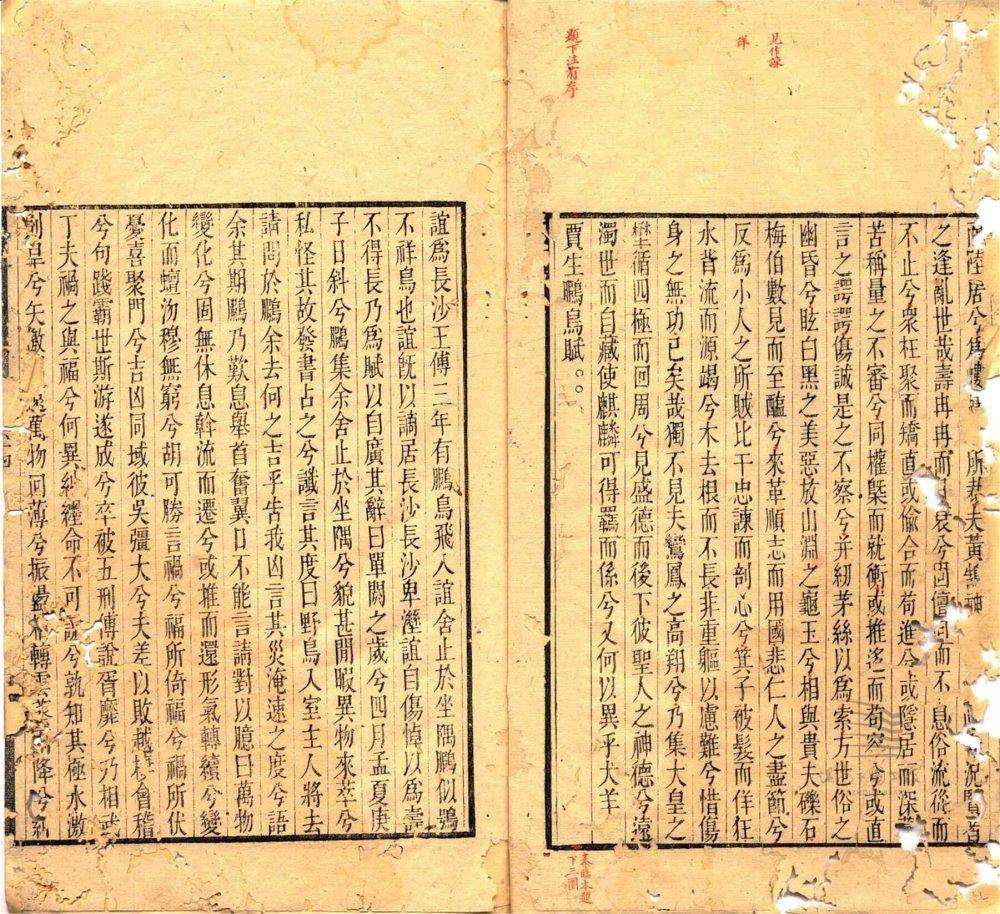 見作諫
題下注有序
陸居兮為螻
所裁夫黃鵠神
況賢者
之逢亂世哉壽冉冉而日衰兮固儃回而不息俗流從而
不止兮衆枉聚而矯直或偷合而苟進兮或隱居而深藏
苦稱量之不審兮同權槩而就衡或推迻而苟容兮或直
言之諤諤傷誠是之不察兮并紉茅絲以爲索方世俗之
幽昏兮眩白黑之美惡放山淵之龜玉兮相與貴夫礫石
梅伯數見而至醢兮來革順志而用國悲仁人之盡節兮
反爲小人之所賊比干忠諫而剖心兮箕子被髮而佯狂
水背流而源竭兮木去根而不長非重軀以慮難兮惜傷
身之無功已矣哉獨不見夫鸞鳳之高翔兮乃集大皇之
壄循四極而回周兮見盛德而後下彼聖人之神德兮遠
濁世而自藏使麒麟可得羈而係兮又何以異乎犬羊
賈生鵩鳥賦。。
臨本題
下三圈
誼爲長沙王傅三年有鵩鳥飛入誼舍止於坐隅鵩似鴞
不祥鳥也誼既以謫居長沙長沙卑溼誼自傷悼以爲壽
不得長乃爲賦以自廣其辭曰單閼之歲兮四月孟夏庚
子日斜兮鵩集余舍止於坐隅兮貌甚閒暇異物來萃兮
私怪其故發書占之兮讖言其度曰野鳥入室主人將去
請問於鵩余去何之吉乎告我凶言其災淹速之度兮語
余其期鵩乃歎息舉首奮翼口不能言請對以臆曰萬物
變化兮固無休息斡流而遷兮或推而還形氣轉續兮變
化而蟺沕穆無窮兮胡可勝言禍兮福所倚福兮禍所伏
憂喜聚門兮吉凶同域彼吳彊大兮夫差以敗越棲會稽
兮句踐霸世斯游遂成兮卒被五刑傅說胥靡兮乃相武
丁夫禍之與福兮何異糾纆命不可說兮孰知其極水激
則旱兮矢激 萬物回薄兮振盪相轉雲蒸 降兮糾